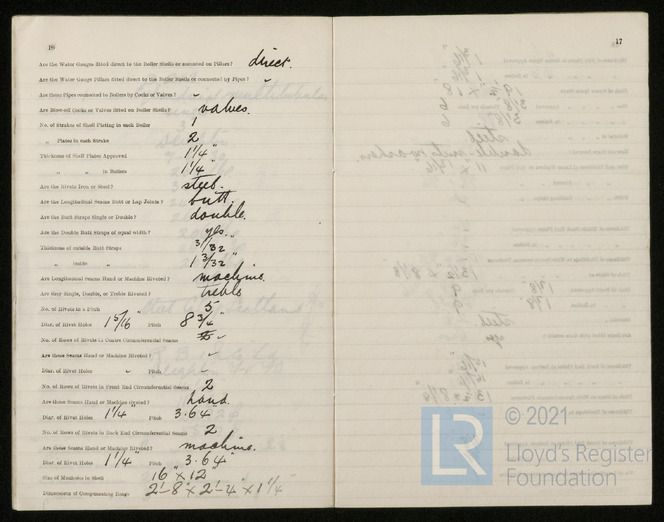 16
Are the Water Gauges fitted direct to the Boiler Shells or mounted on Pillars? direct.
Are the Water Gauge Pillars fitted direct to the Boiler Shells or connected by Pipes? "
Are these Pipes connected to Boilers by Cocks or Valves? "
Are Blow-off Cocks or Valves fitted on Boiler Shells? valves.
No. of Strakes of Shell Plating in each Boiler 1
„ Plates in each Strake 2
Thickness of Shell Plates Approved 1 1/4"
„ „ in Boilers 1 1/4"
Are the Rivets Iron or Steel? steel.
Are the Longitudinal Seams Butt or Lap Joints? butt.
Are the Butt Straps Single or Double? double.
Are the Double Butt Straps of equal width? yes.
Thickness of outside Butt Straps
„ inside „ 1 3/32"
Are Longitudinal Seams Hand or Machine Riveted? machine.
Are they Single, Double, or Treble Riveted? treble
No. of Rivets in a Pitch 5
Diar. of Rivet Holes 1 5/16" Pitch 8 3/4"
No. of Rows of Rivets in Centre Circumferential Seams
Are these Seams Hand or Machine Riveted? "
Diar. of Rivet Holes " Pitch "
No. of Rows of Rivets in Front End Circumferential Seams 2
Are these Seams Hand or Machine Riveted? hand.
Diar. of Rivet Holes 1 1/4" Pitch 3.64"
No. of Rows of Rivets in Back End Circumferential Seams 2
Are these Seams Hand or Machine Riveted? machine.
Diar. of Rivet Holes 1 1/4" Pitch 3.64"
Size of Manholes in Shell 16" x 12"
Dimensions of Compensating Rings 2'-8" x 2'-4" x 1 1/4
17
LR
© 2021
Lloyd's Register
Foundation